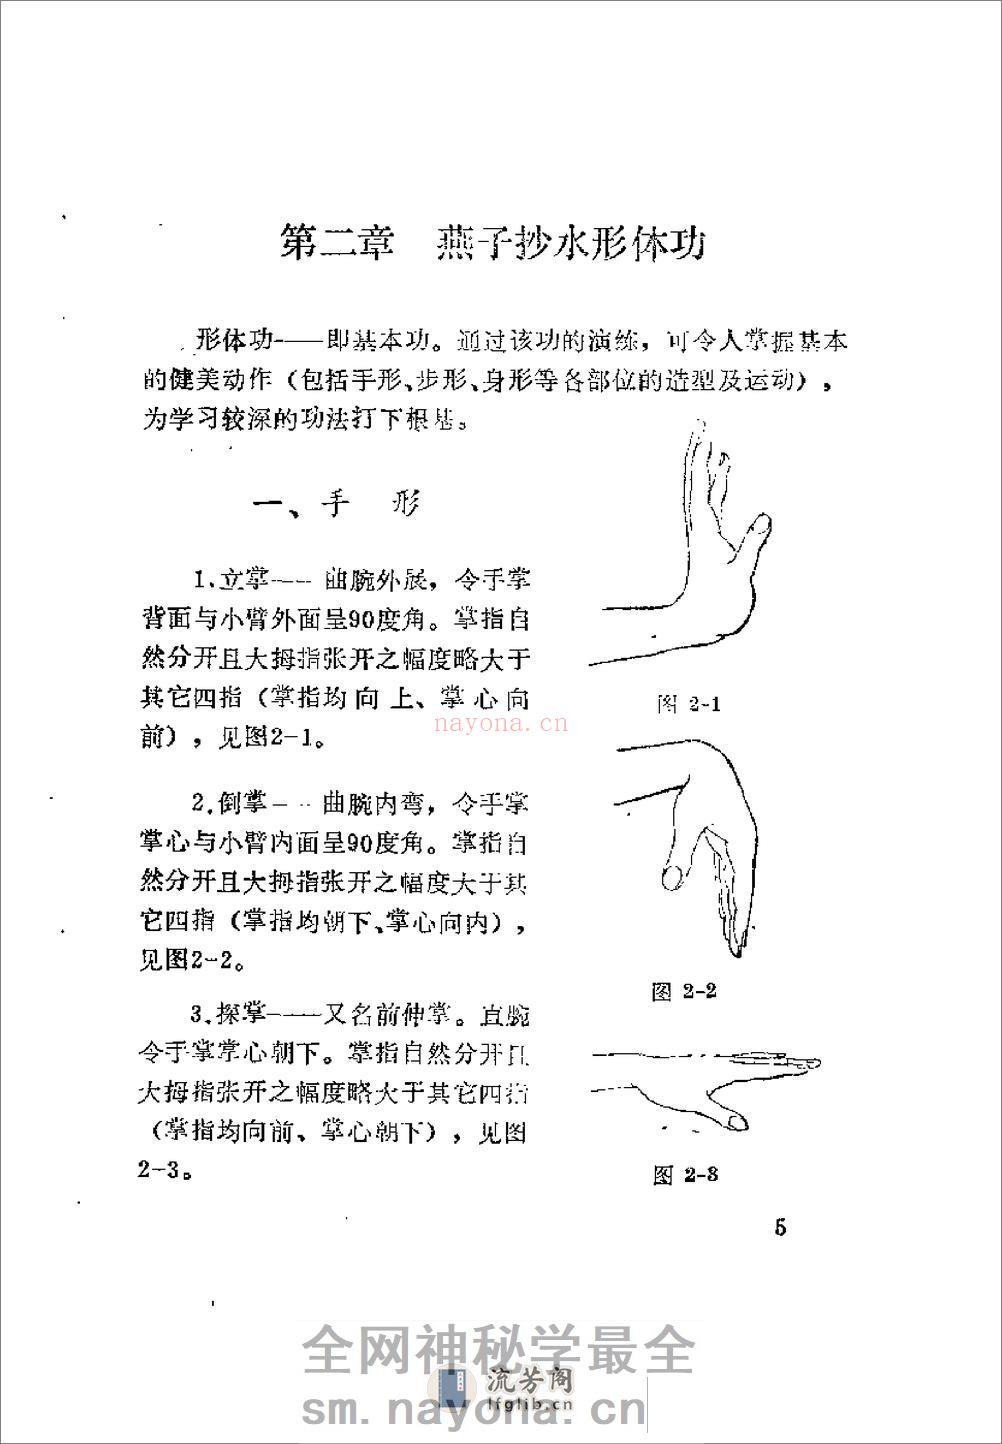 第二章 燕子抄水形体功
形体功——即基本功。通过该功的演练，可令人掌握基本
的健美动作（包括手形、步形、身形等各部位的造型及运动），
为学习较深的功法打下根基。
一、手 形
1.立掌——曲腕外展，令手掌
背面与小臂外面呈90度角。掌指自
然分开且大拇指张开之幅度略大于
其它四指（掌指均向上、掌心向
前），见图2-1。
图 2-1
2.倒掌——曲腕内弯，令手掌
掌心与小臂内面呈90度角。掌指自
然分开且大拇指张开之幅度大于其
它四指（掌指均朝下、掌心向内），
见图2-2。
图 2-2
3.探掌——又名前伸掌。直腕
令手掌掌心朝下。掌指自然分开且
大拇指张开之幅度略大于其它四指
（掌指均向前、掌心朝下），见图
2-3。
图 2-3
5
nayona.cn
全网神秘学最全
流芳阁
lfglib.cn
sm.nayona.cn